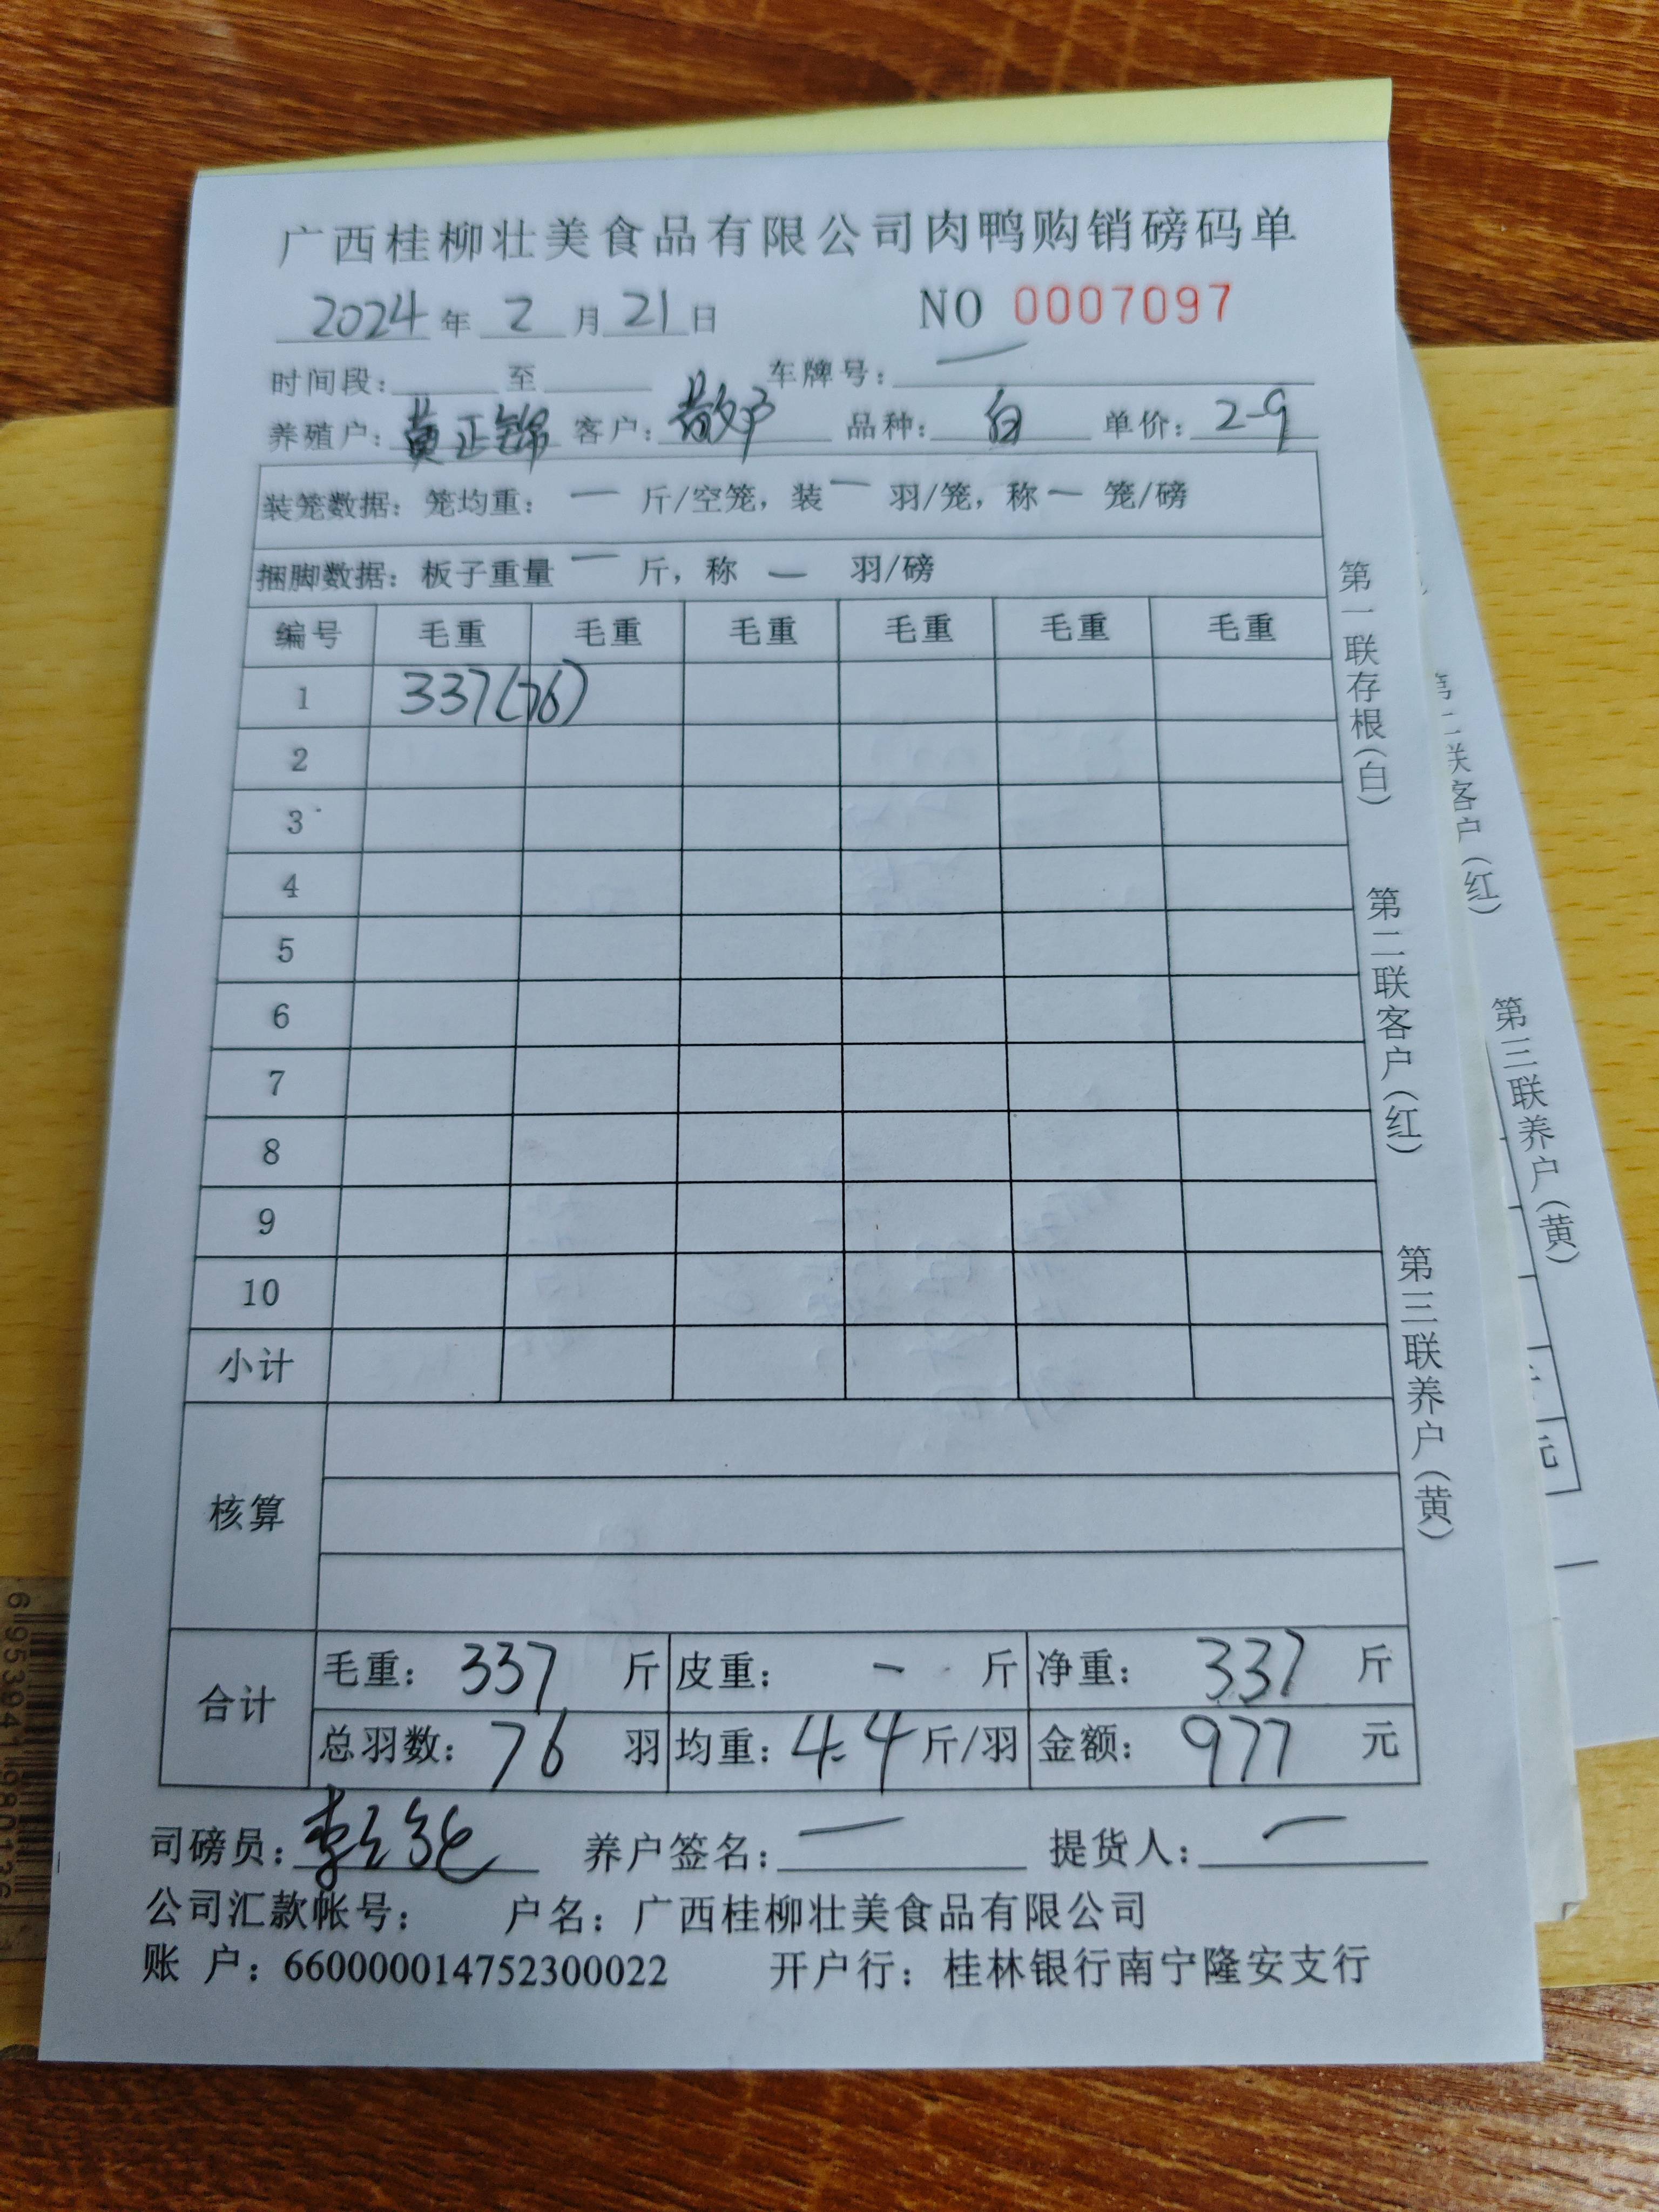 广西桂柳壮美食品有限公司肉鸭购销磅码单
2024年 2 月 21 日 NO 0007097
时间段: 至 车牌号: 一
养殖户: 黄正锦 客户: 散户 品种: 白 单价: 2-9
装笼数据: 笼均重: 一 斤/空笼, 装 一 羽/笼, 称 一 笼/磅
捆脚数据: 板子重量 一 斤, 称 一 羽/磅
编号 毛重 毛重 毛重 毛重 毛重 毛重
1 337(76)
2
3
4
5
6
7
8
9
10
小计
核算
合计 毛重: 337 斤 皮重: - 斤 净重: 337 斤
总羽数: 76 羽 均重: 4.4 斤/羽 金额: 977 元
司磅员: 养户签名: 一 提货人: 一
公司汇款帐号: 户名: 广西桂柳壮美食品有限公司
账 户: 660000014752300022 开户行: 桂林银行南宁隆安支行
第一联存根(白) 第二联客户(红) 第三联养户(黄)
第二联客户(红) 第三联养户(黄)
元